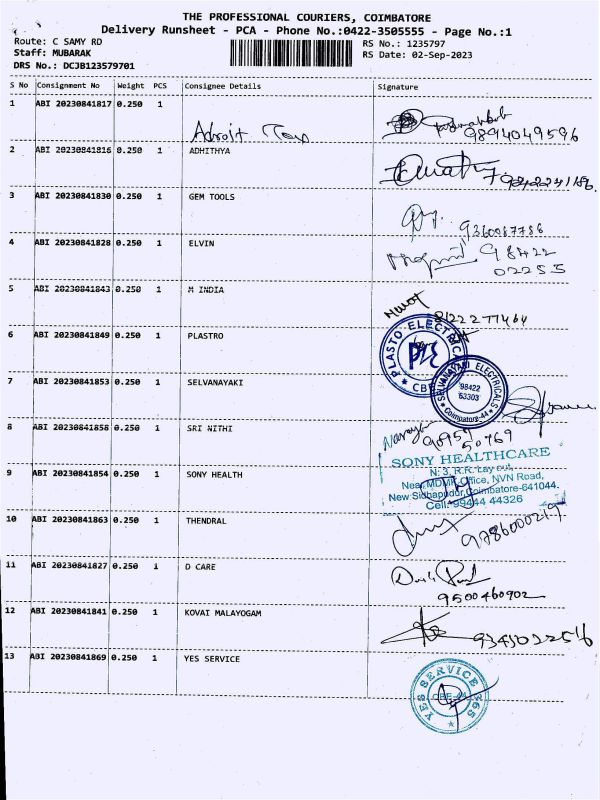 THE PROFESSIONAL COURIERS, COIMBATORE
Delivery Runsheet - PCA - Phone No.:0422-3505555 - Page No.:1
Route: C SAMY RD
RS No.: 1235797
Staff: MUBARAK
RS Date: 02-Sep-2023
DRS No.: DCJB123579701
S No Consignment No Weight PCS Consignee Details Signature
1 ABI 20230841817 0.250 1
Adroit Tax 9894049596
2 ABI 20230841816 0.250 1 ADHITHYA
3 ABI 20230841830 0.250 1 GEM TOOLS
9360067786
4 ABI 20230841828 0.250 1 ELVIN 98422
02255
5 ABI 20230841843 0.250 1 M INDIA
8122277464
6 ABI 20230841849 0.250 1 PLASTRO
PLASTO ELECTRICA
CBE
7 ABI 20230841853 0.250 1 SELVANAYAKI
SELVANAYAKI ELECTRICALS
98422
63303
Coimbatore-44
8 ABI 20230841858 0.250 1 SRI NITHI
90957
50769
9 ABI 20230841854 0.250 1 SONY HEALTH
SONY HEALTHCARE
N: 3, R.R. Lay out,
Near MDMK Office, NVN Road,
New Sidhapudur, Coimbatore-641044.
Cell: 99444 44326
10 ABI 20230841863 0.250 1 THENDRAL
9786000219
11 ABI 20230841827 0.250 1 D CARE
9500460902
12 ABI 20230841841 0.250 1 KOVAI MALAYOGAM
13 ABI 20230841869 0.250 1 YES SERVICE
YES SERVICE 365